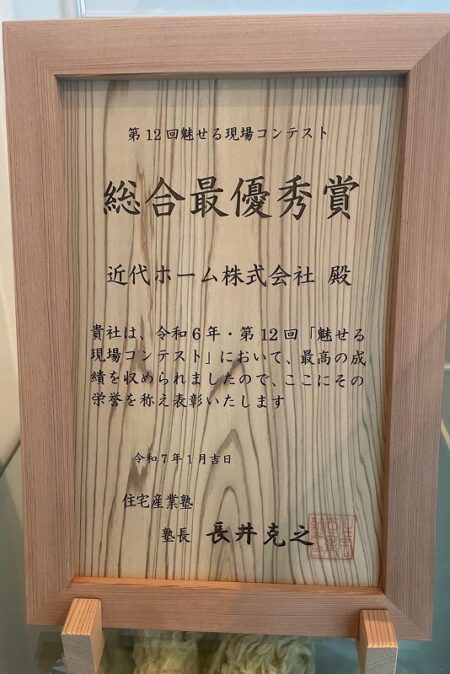 第12回魅せる現場コンテスト
総合最優秀賞
近代ホーム株式会社 殿
貴社は、令和6年・第12回「魅せる
現場コンテスト」において、最高の成
績を収められましたので、ここにその
栄誉を称え表彰いたします
令和7年1月吉日
住宅産業塾
塾長 長井克之